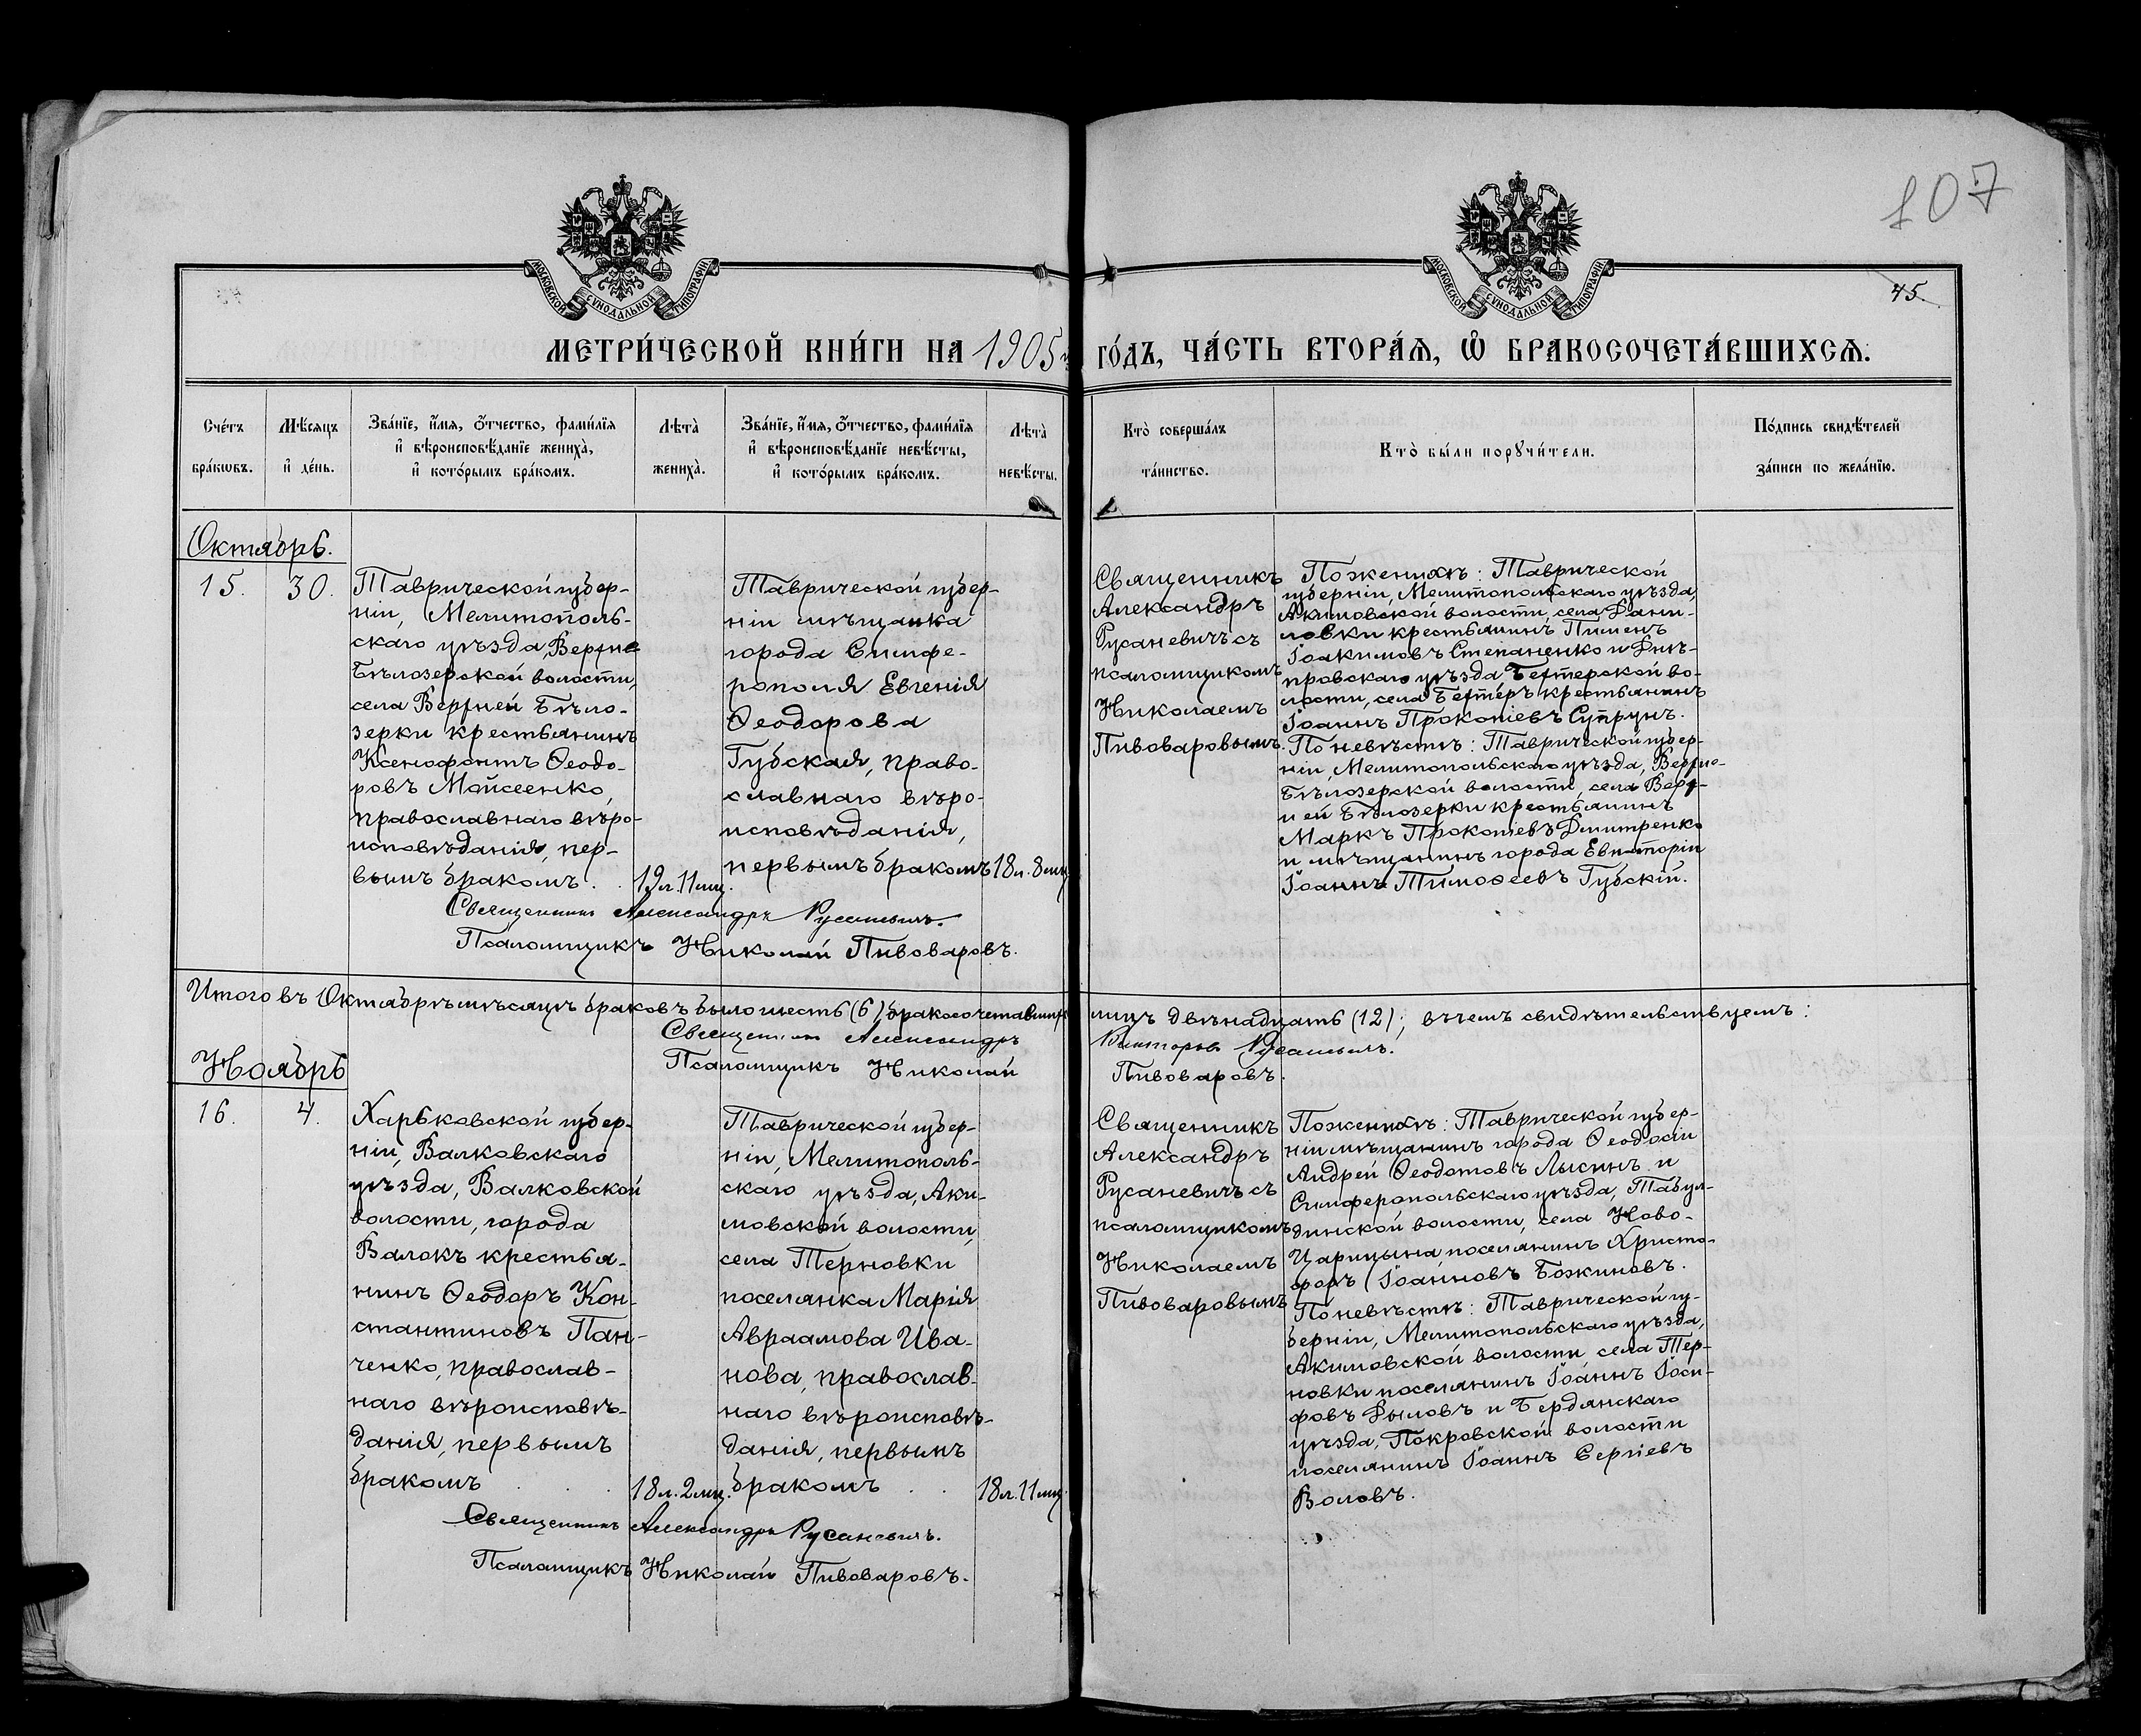 107
45.
МОСКОВСКОЙ СѴНОДАЛЬНОЙ ТИПОГРАФІИ
МОСКОВСКОЙ СѴНОДАЛЬНОЙ ТИПОГРАФІИ
МЕТРИ́ЧЕСКОЙ КНИ́ГИ НА 1905 ГО́ДЪ, ЧА́СТЬ ВТОРА́Ѧ, Ѽ БРАКОСОЧЕТА́ВШИХСѦ.
Сче́тъ бра́кѡвъ.
Мѣ́сяцъ и҆ де́нь.
Зва́нїе, и҆́мя, ѻ҆́тчество, фами́лїя
и҆ вѣроисповѣ́данїе жениха̀,
и҆ кото́рымъ бра́комъ.
Лѣта̀ жениха̀.
Зва́нїе, и҆́мя, ѻ҆́тчество, фами́лїя
и҆ вѣроисповѣ́данїе невѣ́сты,
и҆ кото́рымъ бра́комъ.
Лѣта̀ невѣ́сты.
Кто̀ соверша́лъ
та́инство.
Кто̀ бы́ли порꙋчи́тели.
По́дпись свидѣ́телей
за́писи по жела́нїю.
Октябрь.
15.
30.
Таврической губер-
ніи, Мелитополь-
скаго уѣзда, Верхне
Бѣлозерской волости,
села Верхней Бѣло-
зерки крестьянинъ
Ксенофонтъ Ѳеодо-
ровъ Мойсеенко,
православнаго вѣро-
исповѣданія, пер-
вымъ бракомъ.
19 л. 11 мц.
Таврической губер-
ніи мѣщанка
города Симфе-
рополя Евгенія
Ѳеодорова
Губская, право-
славнаго вѣро-
исповѣданія,
первымъ бракомъ
18 л. 8 мц.
Священникъ
Александръ
Русаневичъ съ
псаломщикомъ
Николаемъ
Пивоваровымъ.
По женихѣ: Таврической
губерніи, Мелитопольскаго уѣзда,
Акимовской волости, села Дани-
ловки крестьянинъ Пименъ
Іоакимовъ Степаненко и Днѣ-
провскаго уѣзда Бехтерской во-
лости, села Бехтеръ крестьянинъ
Іоаннъ Прокопіевъ Супрунъ.
По невѣстѣ: Таврической губер-
ніи, Мелитопольскаго уѣзда, Верхне-
Бѣлозерской волости, села Верх-
ней Бѣлозерки крестьянинъ
Маркъ Прокопіевъ Дмитренко
и мѣщанинъ города Евпаторіи
Іоаннъ Тимоѳеевъ Губскій.
Священникъ Александръ Русаневичъ.
Псаломщикъ Николай Пивоваровъ.
Итого въ Октябрѣ мѣсяцѣ браковъ было шесть (6), бракосочетавших лицъ двѣнадцать (12); въ чемъ свидѣтельствуемъ:
Священникъ Александръ Русаневичъ.
Псаломщикъ Николай Пивоваровъ.
Ноябрь
16.
4.
Харьковской губер-
ніи, Валковскаго
уѣзда, Валковской
волости, города
Валокъ крестья-
нинъ Ѳеодоръ Кон-
стантиновъ Пан-
ченко, православ-
наго вѣроисповѣ-
данія, первымъ
бракомъ
18 л. 2 мц.
Таврической губер-
ніи, Мелитополь-
скаго уѣзда, Аки-
мовской волости,
села Терновки
поселянка Марія
Авраамова Ива-
нова, православ-
наго вѣроисповѣ-
данія, первымъ
бракомъ
18 л. 11 мц.
Священникъ
Александръ
Русаневичъ съ
псаломщикомъ
Николаемъ
Пивоваровымъ
По женихѣ: Таврической губер-
ніи мѣщанинъ города Ѳеодосіи
Андрей Ѳеодотовъ Лысинъ и
Симферопольскаго уѣзда, Табул-
динской волости, села Ново-
Царицына поселянинъ Христо-
форъ Іоанновъ Божиновъ.
По невѣстѣ: Таврической гу-
берніи, Мелитопольскаго уѣзда,
Акимовской волости села Тер-
новки поселянинъ Іоаннъ Іоси-
фовъ Дымовъ и Бердянскаго
уѣзда, Покровской волости
поселянинъ Іоаннъ Сергіевъ
Воловъ.
Священникъ Александръ Русаневичъ.
Псаломщикъ Николай Пивоваровъ.